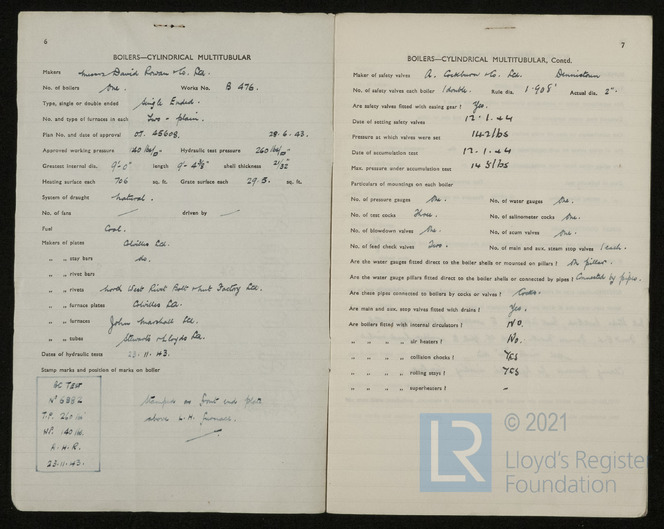 6
BOILERS—CYLINDRICAL MULTITUBULAR
Makers Messrs David Rowan & Co. Ltd.
No. of boilers One. Works No. B 476.
Type, single or double ended Single Ended.
No. and type of furnaces in each Two - plain.
Plan No. and date of approval 45608. 28.6.43.
Approved working pressure 140 lbs/□" Hydraulic test pressure 260 lbs/□"
Greatest internal dia. 9'-0" length 9'- 4⅜" shell thickness 21/32"
Heating surface each 706 sq. ft. Grate surface each 29.5. sq. ft.
System of draught Natural.
No. of fans — driven by —
Fuel Coal.
Makers of plates Colvilles Ltd.
„ „ stay bars do.
„ „ rivet bars
„ „ rivets North West Rivet Bolt & Nut Factory Ltd.
„ „ furnace plates Colvilles Ltd.
„ „ furnaces John Marshall Ltd.
„ „ tubes Stewarts & Lloyds Ltd.
Dates of hydraulic tests 23.11.43.
Stamp marks and position of marks on boiler
TEST
No 6882
T.P. 260 lbs
W.P. 140 lbs.
23.11.43.
Stamped on front end plate
above L.H. furnace.
7
BOILERS—CYLINDRICAL MULTITUBULAR, Contd.
Maker of safety valves A. Cockburn & Co. Ltd. Dennistoun
No. of safety valves each boiler 1 double. Rule dia. 1.908" Actual dia. 2".
Are safety valves fitted with easing gear? Yes.
Date of setting safety valves 12.1.44
Pressure at which valves were set 142 lbs
Date of accumulation test 12.1.44
Max. pressure under accumulation test 148 lbs
Particulars of mountings on each boiler
No. of pressure gauges One. No. of water gauges One.
No. of test cocks Three. No. of salinometer cocks One.
No. of blowdown valves One. No. of scum valves One.
No. of feed check valves Two. No. of main and aux. steam stop valves 1 each.
Are the water gauges fitted direct to the boiler shells or mounted on pillars? On pillar.
Are the water gauge pillars fitted direct to the boiler shells or connected by pipes? Connected by pipes.
Are these pipes connected to boilers by cocks or valves? Cocks.
Are main and aux. stop valves fitted with drains? Yes.
Are boilers fitted with internal circulators? NO.
„ „ „ „ air heaters? No.
„ „ „ „ collision chocks? YES
„ „ „ „ rolling stays? YES
„ „ „ „ superheaters? -
LR © 2021
Lloyd's Register
Foundation